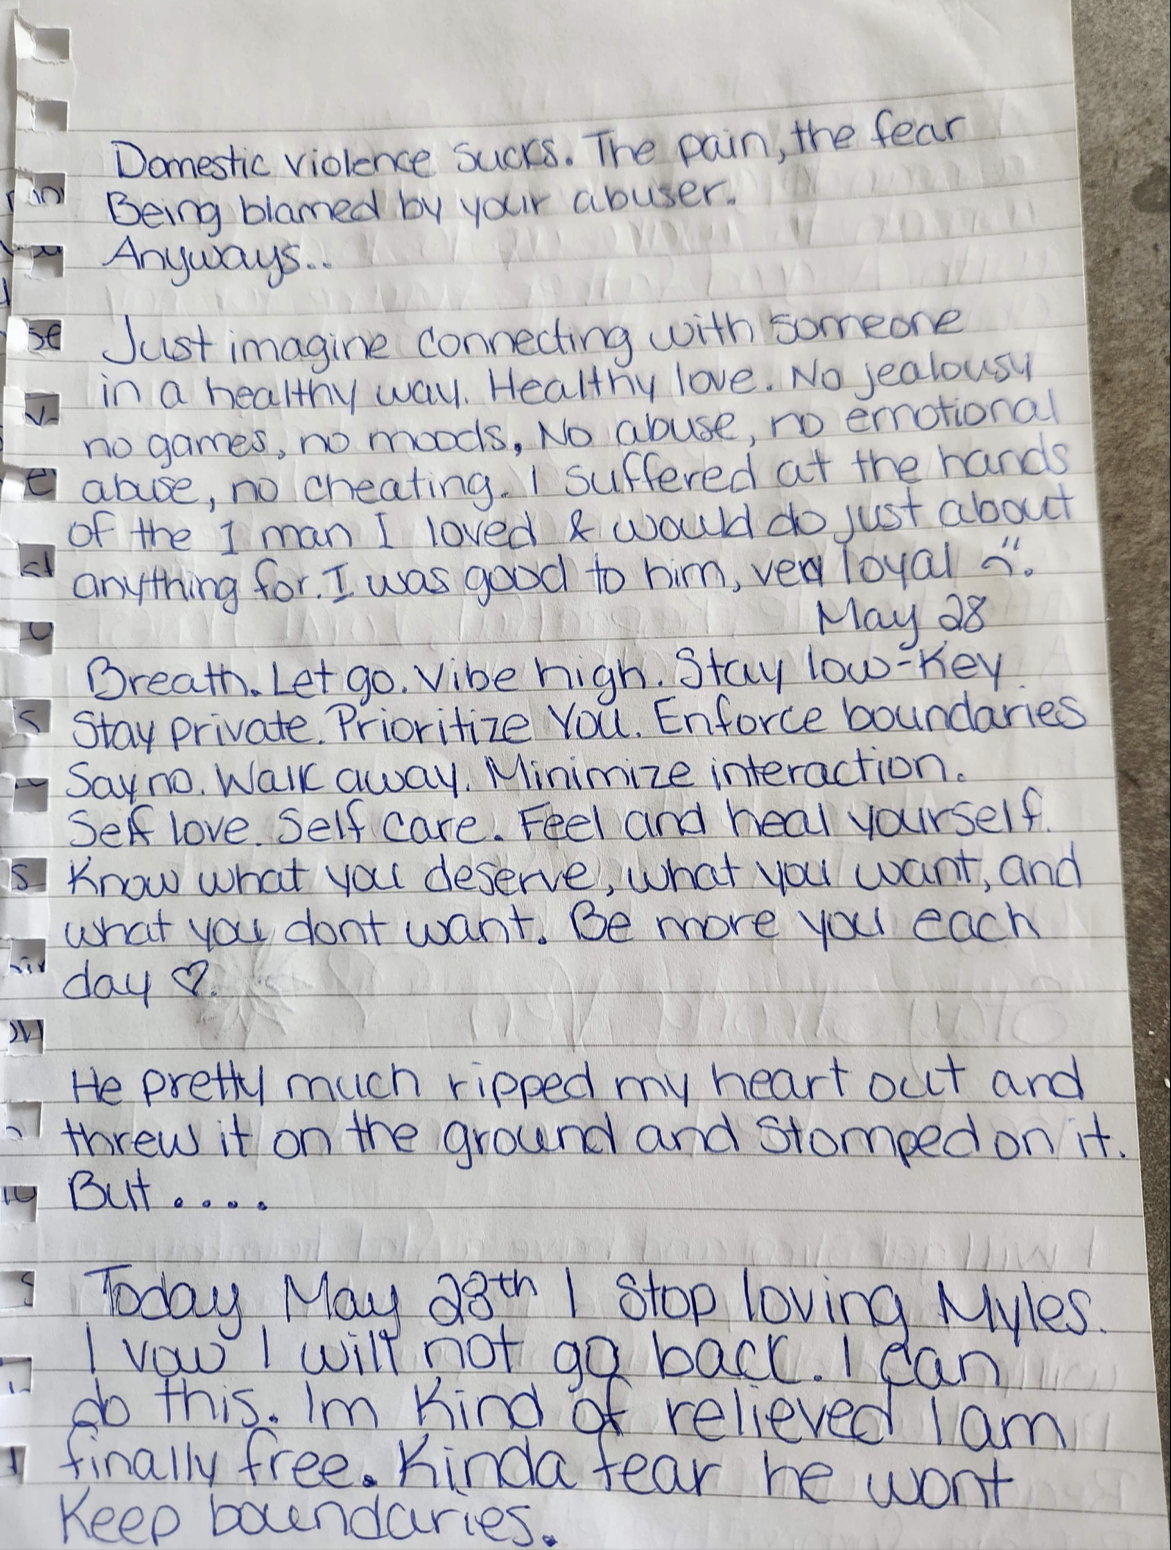 Domestic violence sucks. The pain, the fear
Being blamed by your abuser.
Anyways..
Just imagine connecting with someone
in a healthy way. Healthy love. No jealousy
no games, no moods, No abuse, no emotional
abuse, no cheating. I suffered at the hands
of the 1 man I loved & would do just about
anything for. I was good to him, very loyal
May 28
Breath. Let go. Vibe high. Stay low-key
Stay private. Prioritize You. Enforce boundaries
Say no. Walk away. Minimize interaction.
Self love. Self care. Feel and heal yourself.
Know what you deserve, what you want, and
what you dont want. Be more you each
day ♡.
He pretty much ripped my heart out and
threw it on the ground and stomped on it.
But ....
Today May 28th I stop loving Myles.
I vow I will not go back. I can
do this. Im kind of relieved I am
finally free. Kinda fear he wont
keep boundaries.